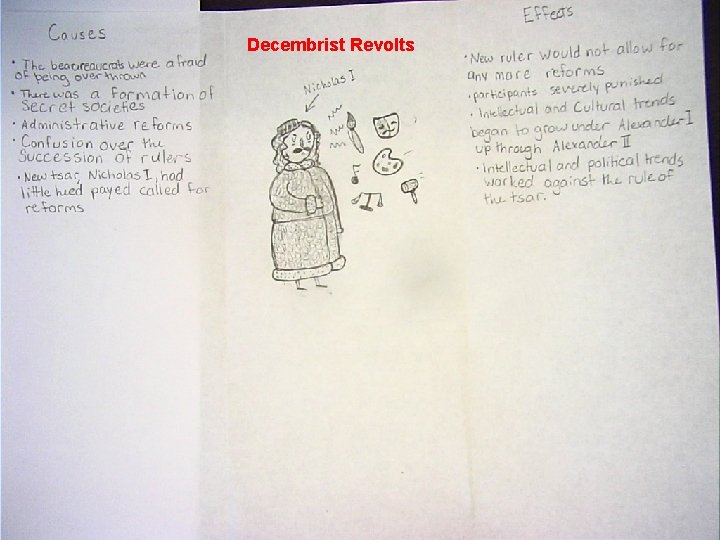 Causes
• The beacreaucrats were afraid
of being overthrown
• There was a formation of
secret societies
• Administrative reforms
• Confusion over the
succession of rulers
• New tsar, Nicholas I, had
little heed payed called for
reforms
Decembrist Revolts
Nicholas I
Effects
• New ruler would not allow for
any more reforms
• participants severely punished
• Intellectual and Cultural trends
began to grow under Alexander I
up through Alexander II
• Intellectual and political trends
worked against the rule of
the tsar.